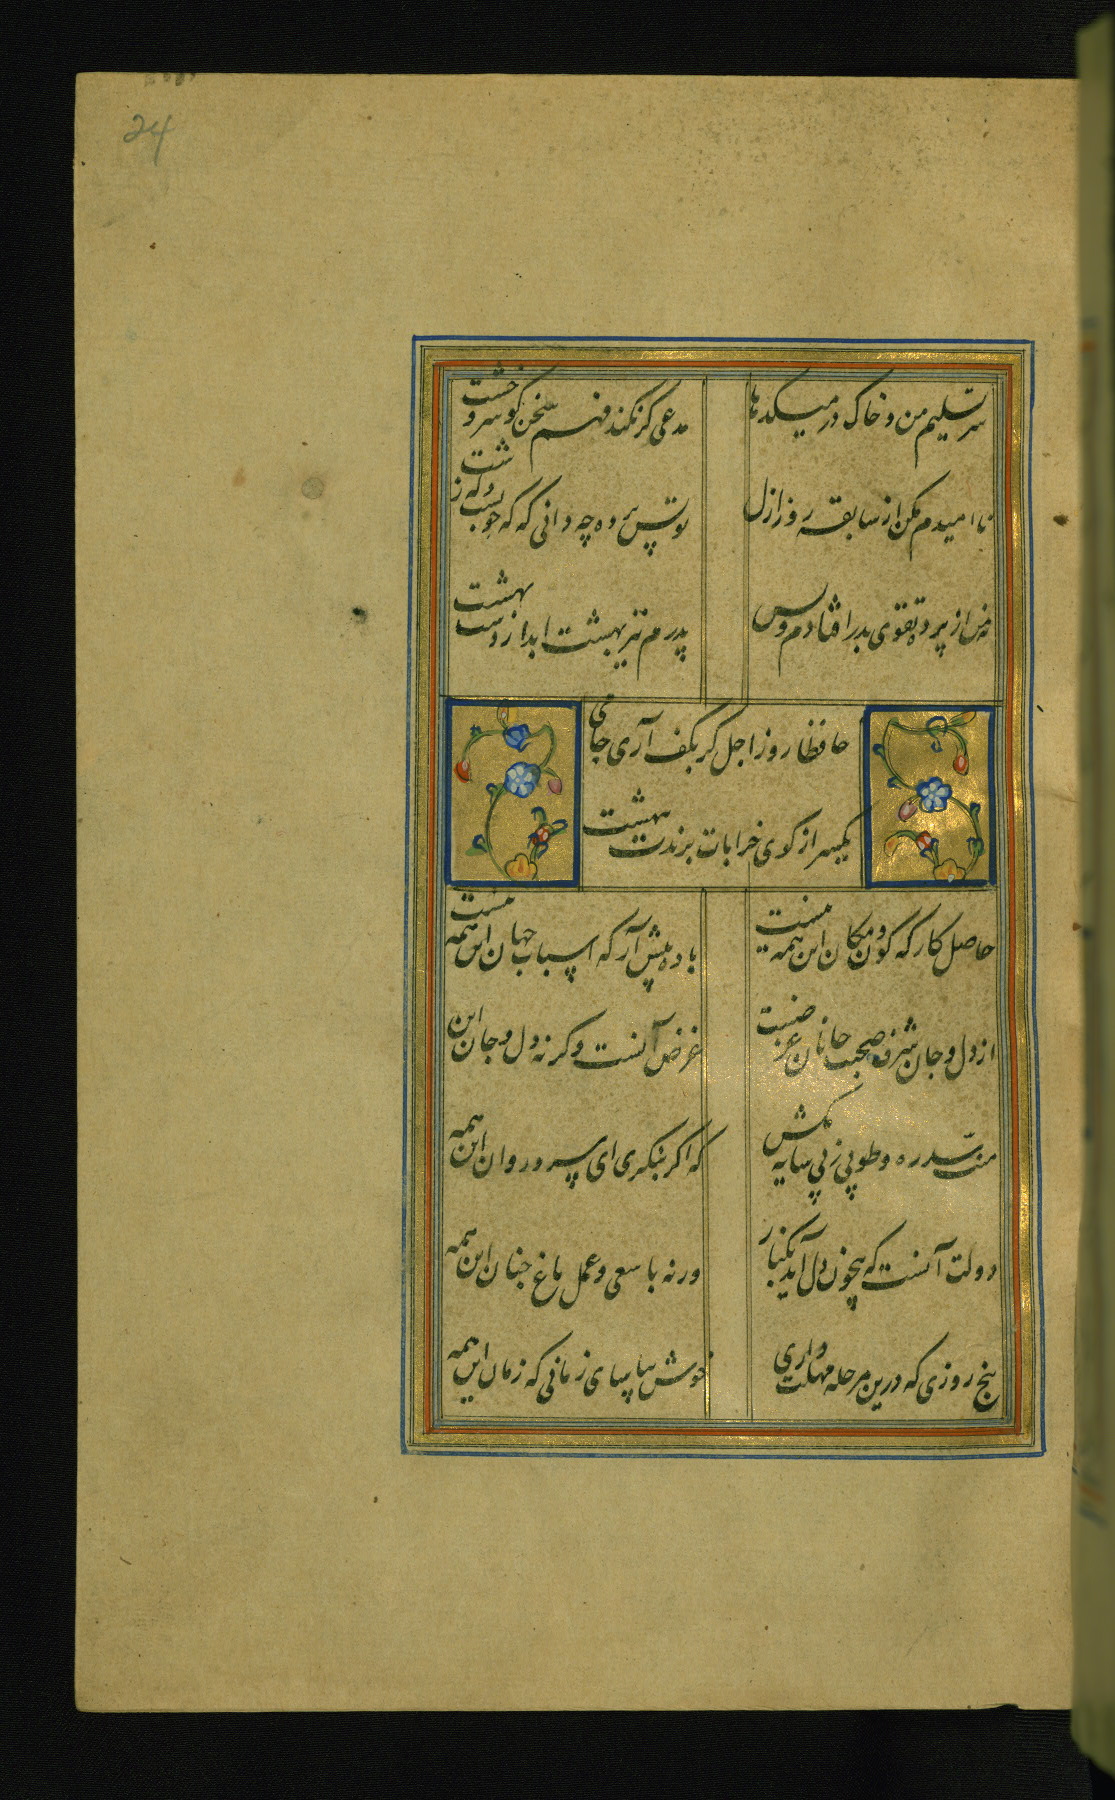 24
سر تسلیم من و خاک در میکدها
مدعی کر نکند فهم سخن کو سر و خشت
نا امیدم مکن از سابقه روز ازل
تو پس پرده چه دانی که که خوبست و که زشت
نه من از پرده تقوی بدر افتادم و بس
پدرم نیز بهشت ابد از دست بهشت
حافظا روز اجل کر بکف آری جامی
یکسر از کوی خرابات برندت ببهشت
حاصل کارکه کون و مکان این همه نیست
باده پیش آر که اسباب جهان این همه نیست
از دل و جان شرف صحبت جانان غرضست
غرض آنست وکرنه دل و جان این
منت سدره و طوبی ز پی سایه مکش
که اکر بنکری ای سرو روان این همه
دولت آنست که بیخون دل آید بکنار
ورنه با سعی و عمل باغ جنان این همه
پنج روزی که درین مرحله مهلت داری
خوش بیاسای زمانی که زمان این همه